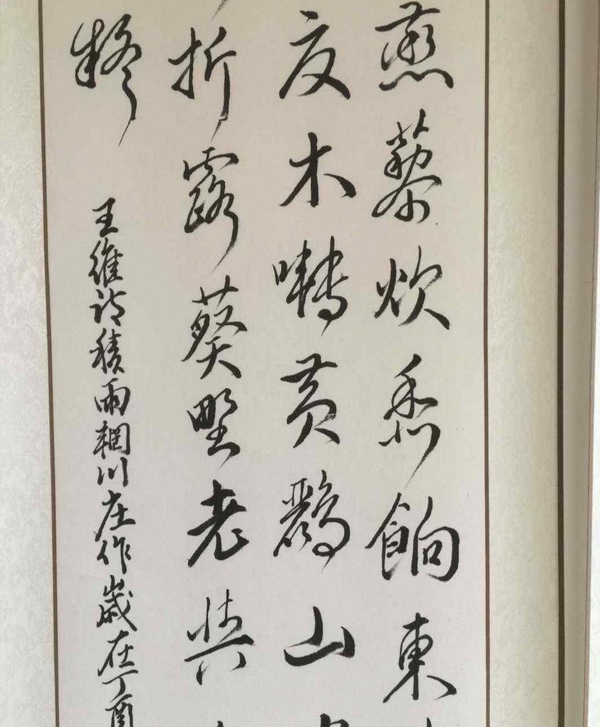 蒸藜炊黍餉東
夏木囀黄鸝山
折露葵野老與
疑
王維詩積雨輞川庄作歲在丁酉